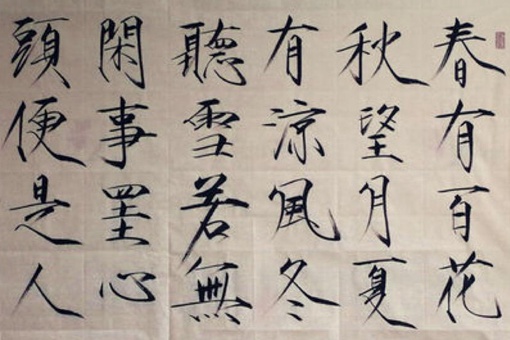 春有百花
秋望月夏
有涼風冬
聽雪若無
閑事罣心
頭便是人